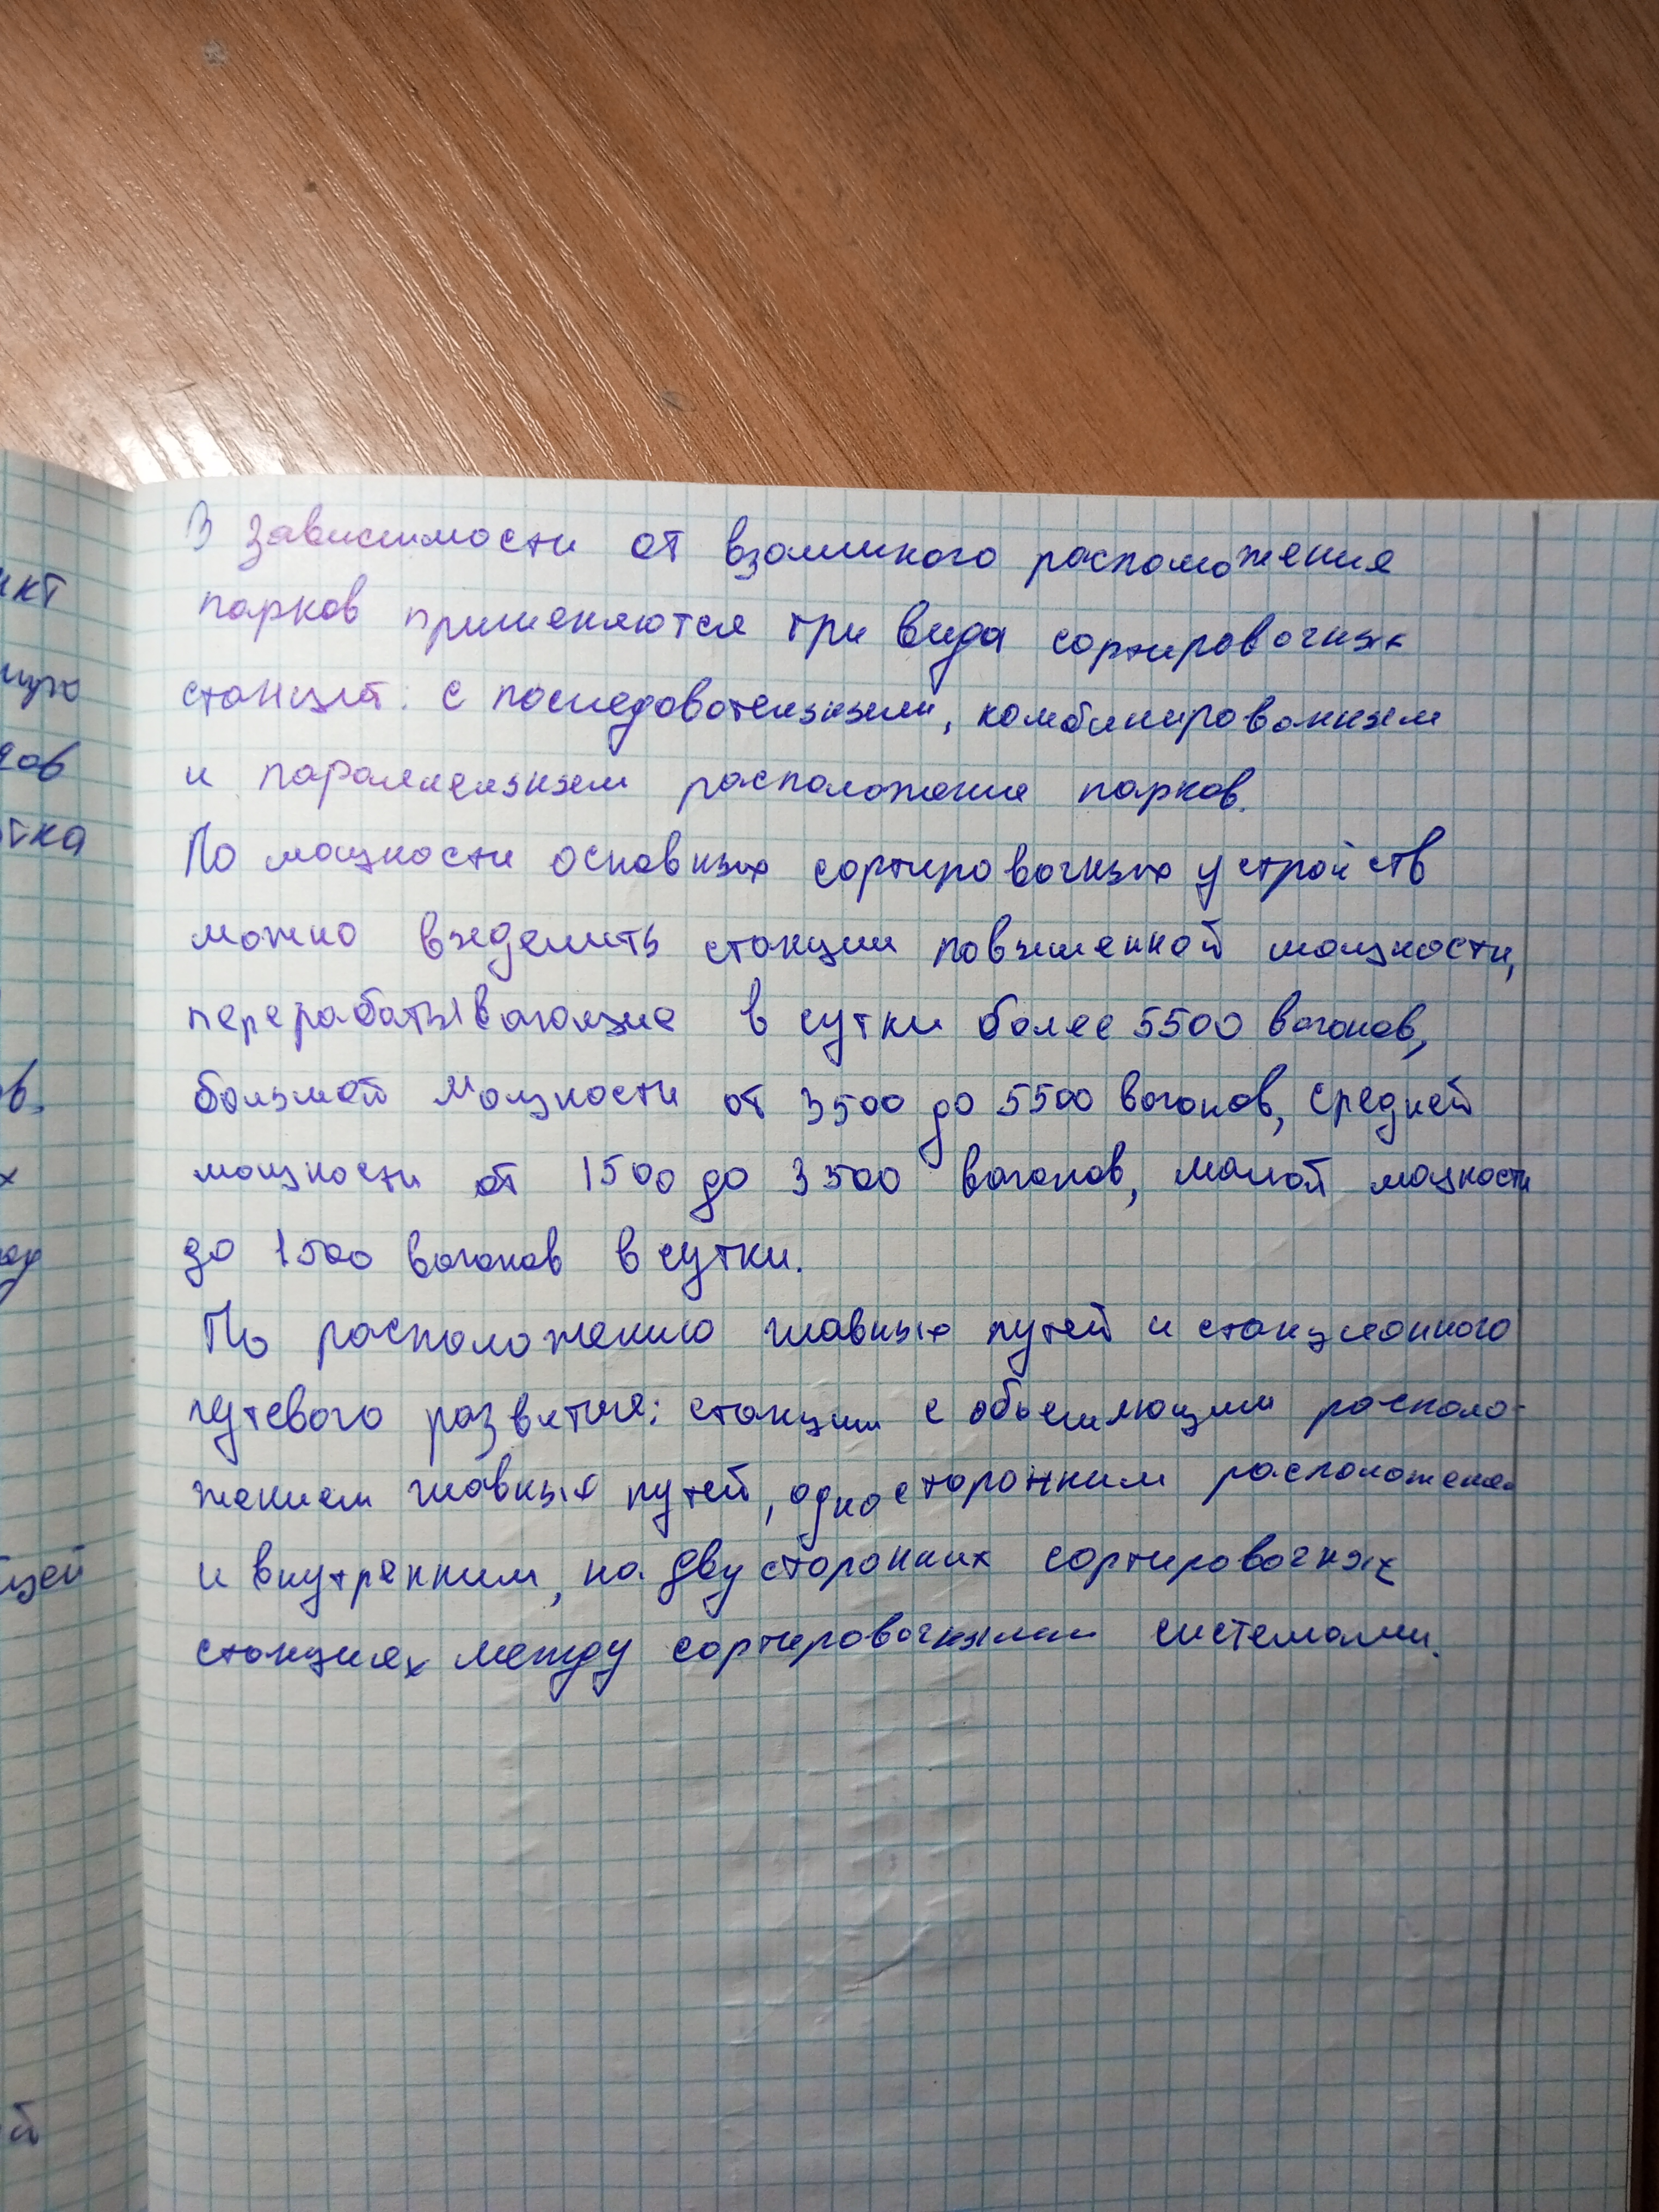 В зависимости от взаимного расположения
парков применяются три вида сортировочных
станций: с последовательным, комбинированным
и параллельным расположение парков.
По мощности основных сортировочных устройств
можно выделить станции повышенной мощности,
перерабатывающие в сутки более 5500 вагонов,
большой мощности от 3500 до 5500 вагонов, средней
мощности от 1500 до 3500 вагонов, малой мощности
до 1500 вагонов в сутки.
По расположению главных путей и станционного
путевого развития: станции с обьемлющим располо-
жением главных путей, односторонним
и внутренним, на двусторонних сортировочных
станциях между сортировочными системами.
икт
дов
тка
ов.
х
щей